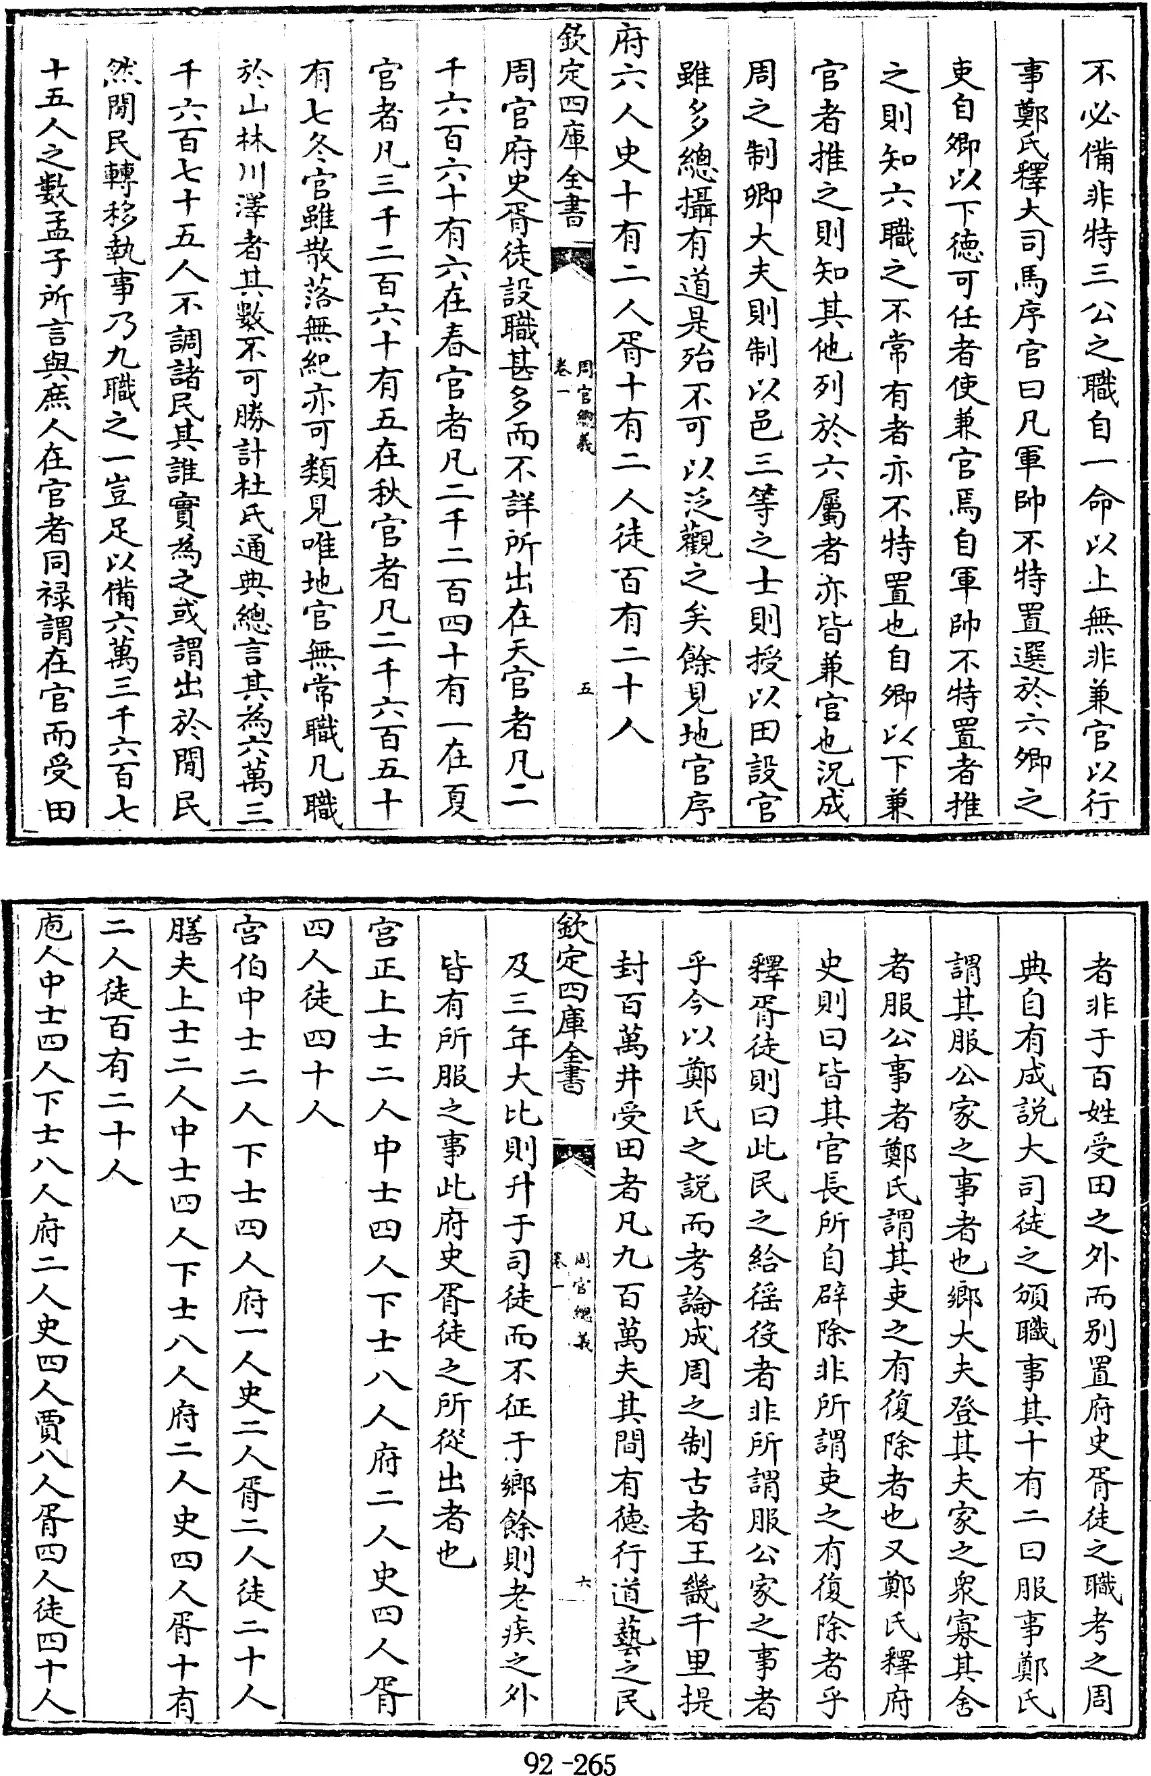 不必備非特三公之職自一命以上無非兼官以行
事鄭氏釋大司馬序官曰凡軍帥不特置選於六卿之
吏自卿以下德可任者使兼官焉自軍帥不特置者推
之則知六職之不常有者亦不特置也自卿以下兼
官者推之則知其他列於六屬者亦皆兼官也況成
周之制卿大夫則制以邑三等之士則授以田設官
雖多總攝有道是殆不可以泛觀之矣餘見地官序
府六人史十有二人胥十有二人徒百有二十人
欽定四庫全書
周官總義
卷一
五
周官府史胥徒設職甚多而不詳所出在天官者凡二
千六百六十有六在春官者凡二千二百四十有一在夏
官者凡三千二百六十有五在秋官者凡二千六百五十
有七冬官雖散落無紀亦可類見唯地官無常職凡職
於山林川澤者其數不可勝計杜氏通典總言其為六萬三
千六百七十五人不調諸民其誰實為之或謂出於閒民
然閒民轉移執事乃九職之一豈足以備六萬三千六百七
十五人之數孟子所言與庶人在官者同祿謂在官而受田
者非于百姓受田之外而別置府史胥徒之職考之周
典自有成説大司徒之頒職事其十有二曰服事鄭氏
謂其服公家之事者也鄉大夫登其夫家之衆寡其舍
者服公事者鄭氏謂其吏之有復除者也又鄭氏釋府
史則曰皆其官長所自辟除非所謂吏之有復除者乎
釋胥徒則曰此民之給徭役者非所謂服公家之事者
乎今以鄭氏之説而考論成周之制古者王畿千里提
封百萬井受田者凡九百萬夫其間有德行道藝之民
欽定四庫全書
周官總義
卷一
六
及三年大比則升于司徒而不征于鄉餘則老疾之外
皆有所服之事此府史胥徒之所從出者也
宮正上士二人中士四人下士八人府二人史四人胥
四人徒四十人
宮伯中士二人下士四人府一人史二人胥二人徒二十人
膳夫上士二人中士四人下士八人府二人史四人胥十有
二人徒百有二十人
庖人中士四人下士八人府二人史四人賈八人胥四人徒四十人
92-265